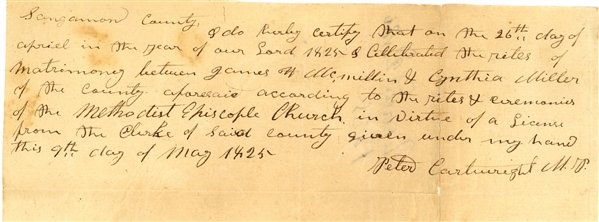 Sangamon County,
I do herby certify that on the 26th day of
apriel in the year of our Lord 1825 I Cellibrated the rites of
Matrimoney between games H Mcmillin & Cynthia Miller
of the County aforesaid according to the rites & ceremonies
of the Methodist Episcople Church, in Virtue of a License
from the Clerke of said county given under my hand
this 9th day of May 1825
Peter Cartwright M.P.